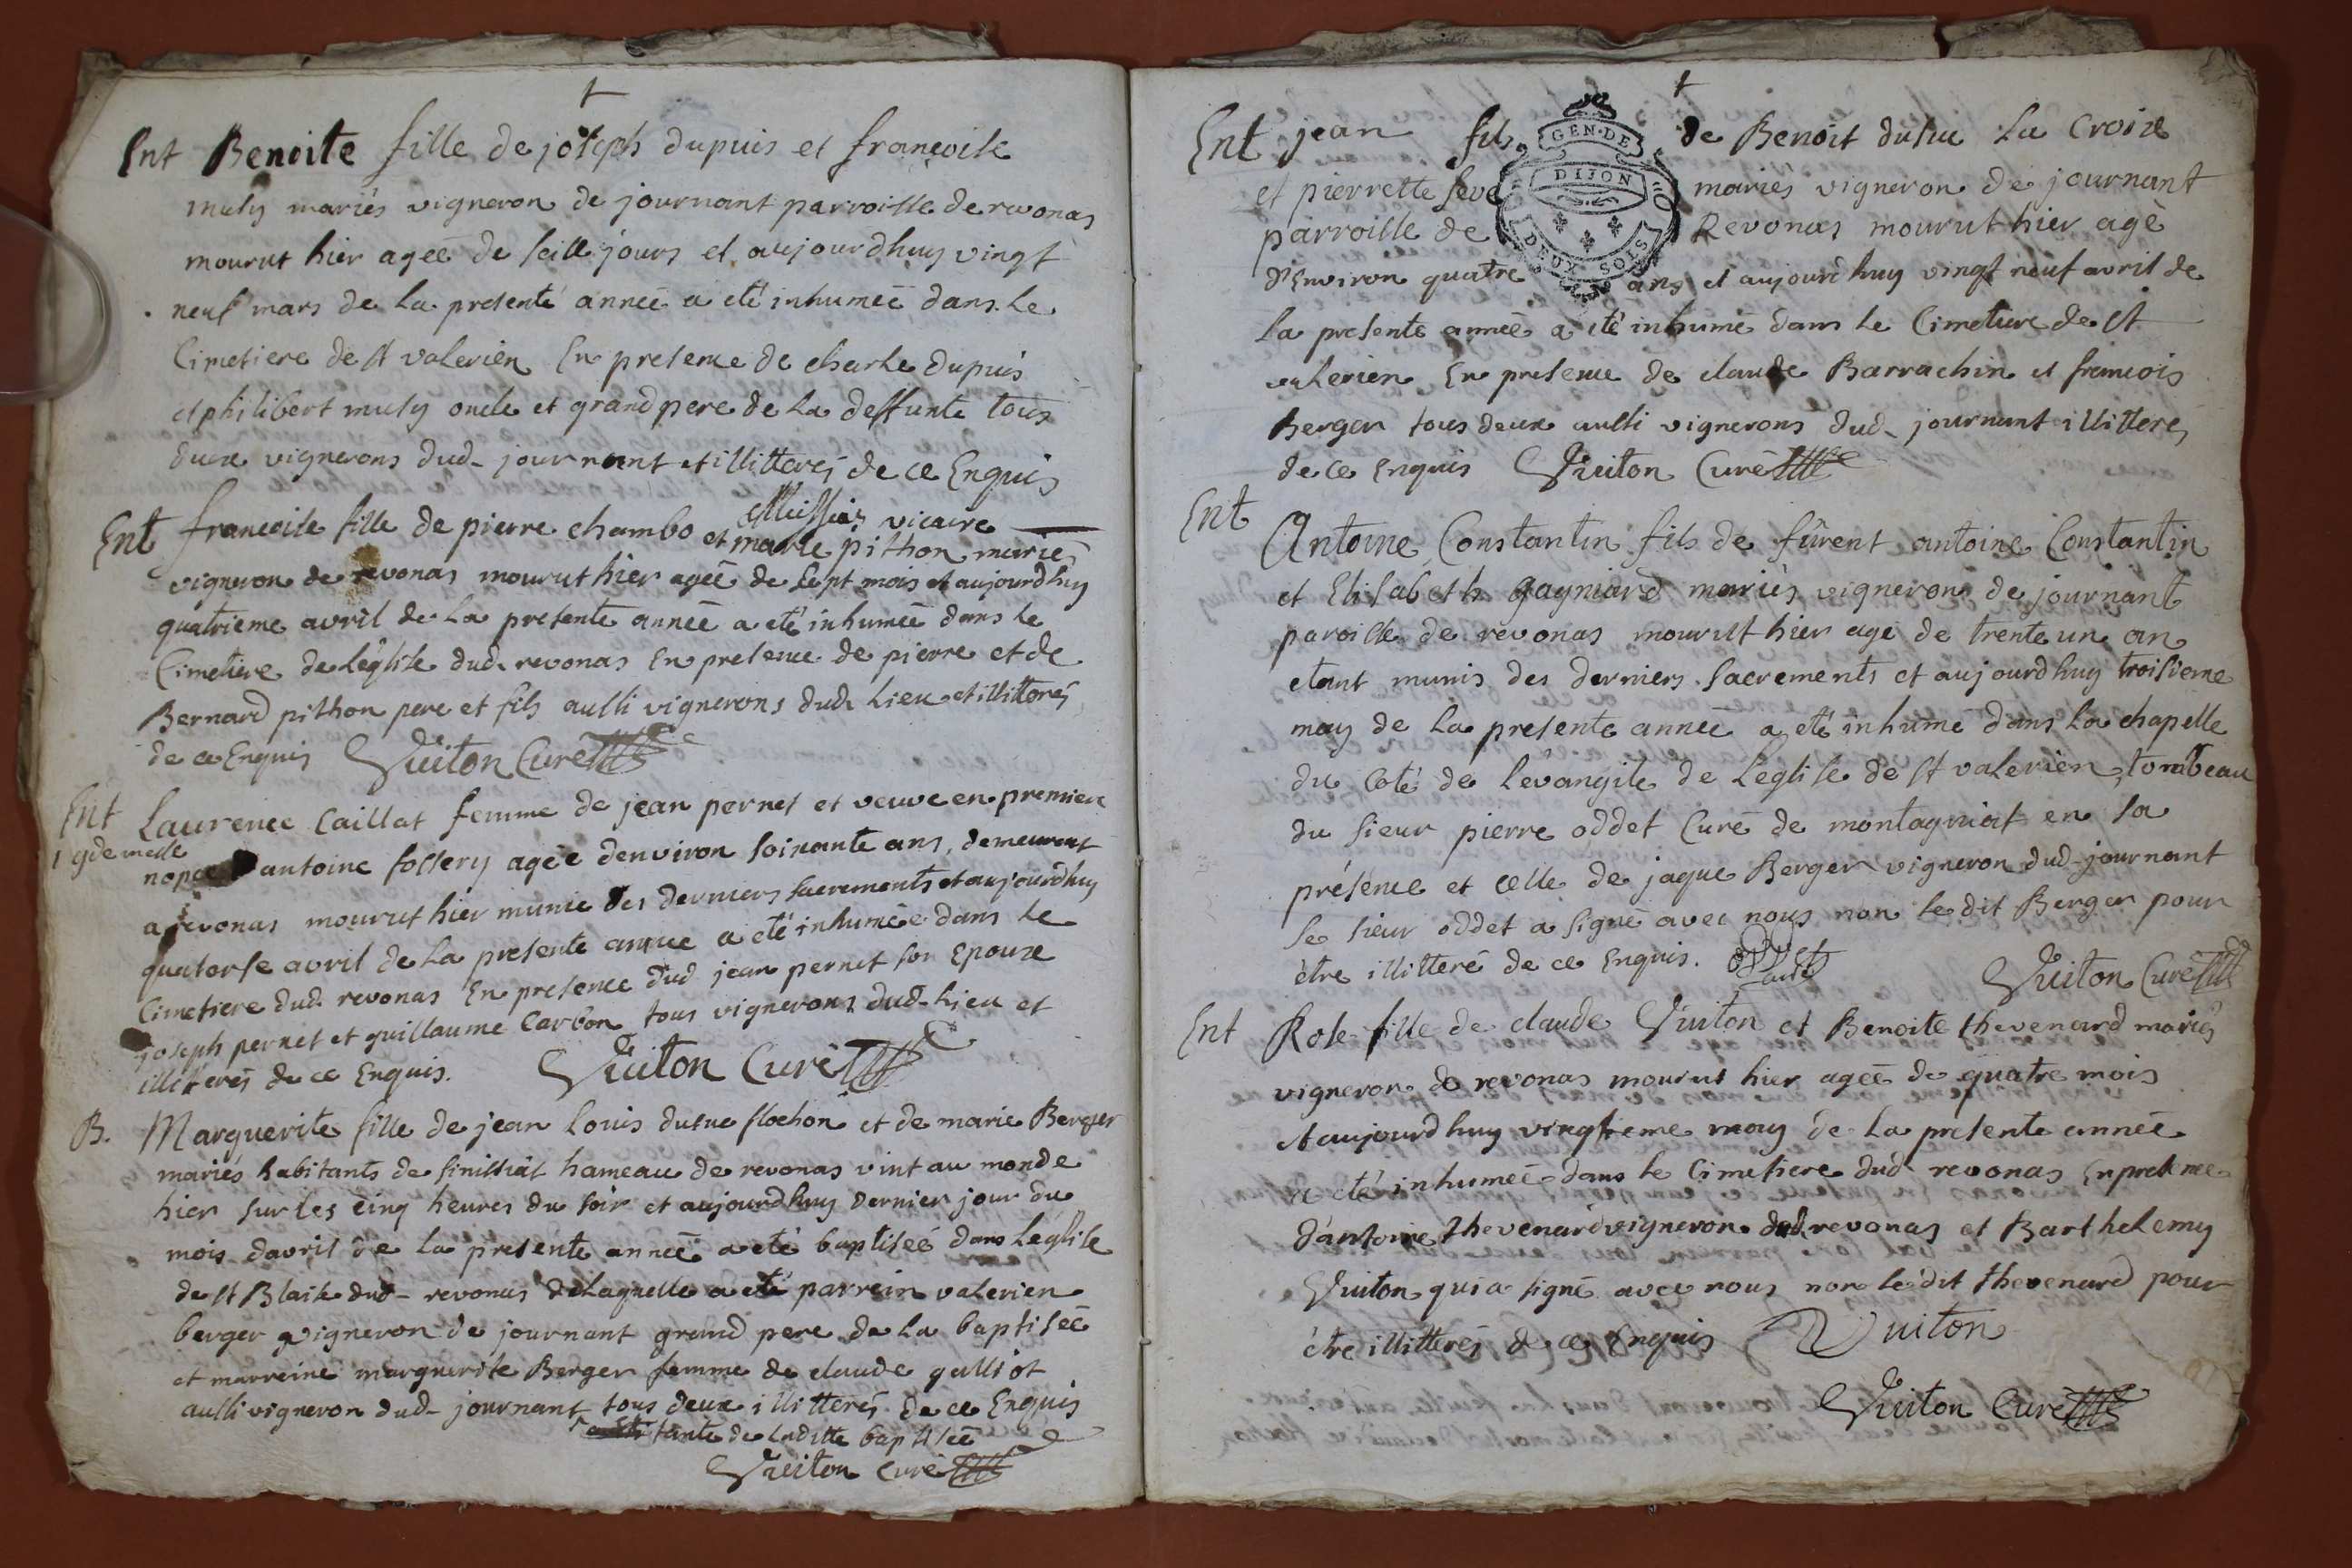 Ent Benoite fille de joseph dupuis et francoise
muty mariés vigneron de journant parroisse de revonas
mourut hier ageé de seise jours et aujourdhuy vingt
neuf mars de la presente anneé a eté inhumeé dans le
Cimetiere de st valerien En presence de charle dupuis
et philibert muty oncle et grand pere de la deffunte tous
deux vignerons dud. journant et illitterés de ce Enquis
vicaire
Ent francoise fille de pierre chambo et marie pithon mariés
vigneron de revonas mourut hier ageé de sept mois et aujourdhuy
quatrieme avril de la presente anneé a eté inhumeé dans le
Cimetiere de l'eglise dud. revonas En presence de pierre et de
Bernard pithon pere et fils aussi vignerons dud. lieu et illitterés
de ce Enquis Vuiton Curé
Ent Laurence Caillat femme de jean pernet et veuve en premiere
1 gde messe
nopce antoine fossery ageé denviron soixante ans, demeurant
a revonas mourut hier munie des derniers sacrements et aujourdhuy
quatorse avril de la presente anneé a eté inhumeé dans le
Cimetiere dud. revonas En presence dud. jean pernet son Epoux
joseph pernet et guillaume Carbon tous vignerons dud. lieu et
illitterés de ce Enquis. Vuiton Curé
B. Marguerite fille de jean Louis dusuc flochon et de marie Berger
mariés habitants de sinissiat hameau de revonas vint au monde
hier sur les cinq heures du soir et aujourdhuy Dernier jour du
mois davril de la presente anneé a eté baptiseé dans l'eglise
de st Blaise dud. revonas de laquelle a eté parrein valerien
berger vigneron de journant grand pere de la baptiseé
et marreine marguerite Berger femme de claude gulliot
aussi vigneron dud. journant tous deux illitterés de ce Enquis
tante de laditte baptiseé
Vuiton Curé
GEN·DE
DIJON
DEUX SOLS
Ent jean fils de Benoit dusuc La Croix
et pierrette seve mariés vigneron de journant
parroisse de Revonas mourut hier agé
d'Environ quatre ans et aujourdhuy vingt neuf avril de
la presente anneé a eté inhumé dans le Cimetiere de st
valerien En presence de claude Barrachin et francois
Berger tous deux aussi vignerons dud. journant illitterés
de ce Enquis Vuiton Curé
Ent
Antoine Constantin fils de fûrent antoine Constantin
et Elisabeth gagniard mariés vigneron de journant
paroisse de revonas mourut hier agé de trente un an
etant munis des derniers sacrements et aujourdhuy troisieme
may de la presente anneé a eté inhumé dans la chapelle
du coté de l'évangile de l'eglise de st valerien, tombeau
du sieur pierre oddet Curé de montagniat en sa
présence et celle de jaque Berger vigneron dud. journant
le sieur oddet a signé avec nous non le dit Berger pour
être illitteré de ce Enquis. oddet
curé Vuiton Curé
Ent Rose fille de claude Vuiton et Benoite thevenard mariés
vigneron de revonas mourut hier ageé de quatre mois
et aujourdhuy vingtieme may de la presente anneé
a eté inhumeé dans le Cimetiere dud. revonas En presence
d'antoine thevenard vigneron dud. revonas et Barthelemy
Vuiton qui a signé avec nous non le dit thevenard pour
être illitterés de ce Enquis Vuiton
Vuiton Curé